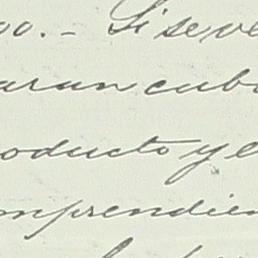 00.- Si se ve
aran cub
oducto y e
mprendien